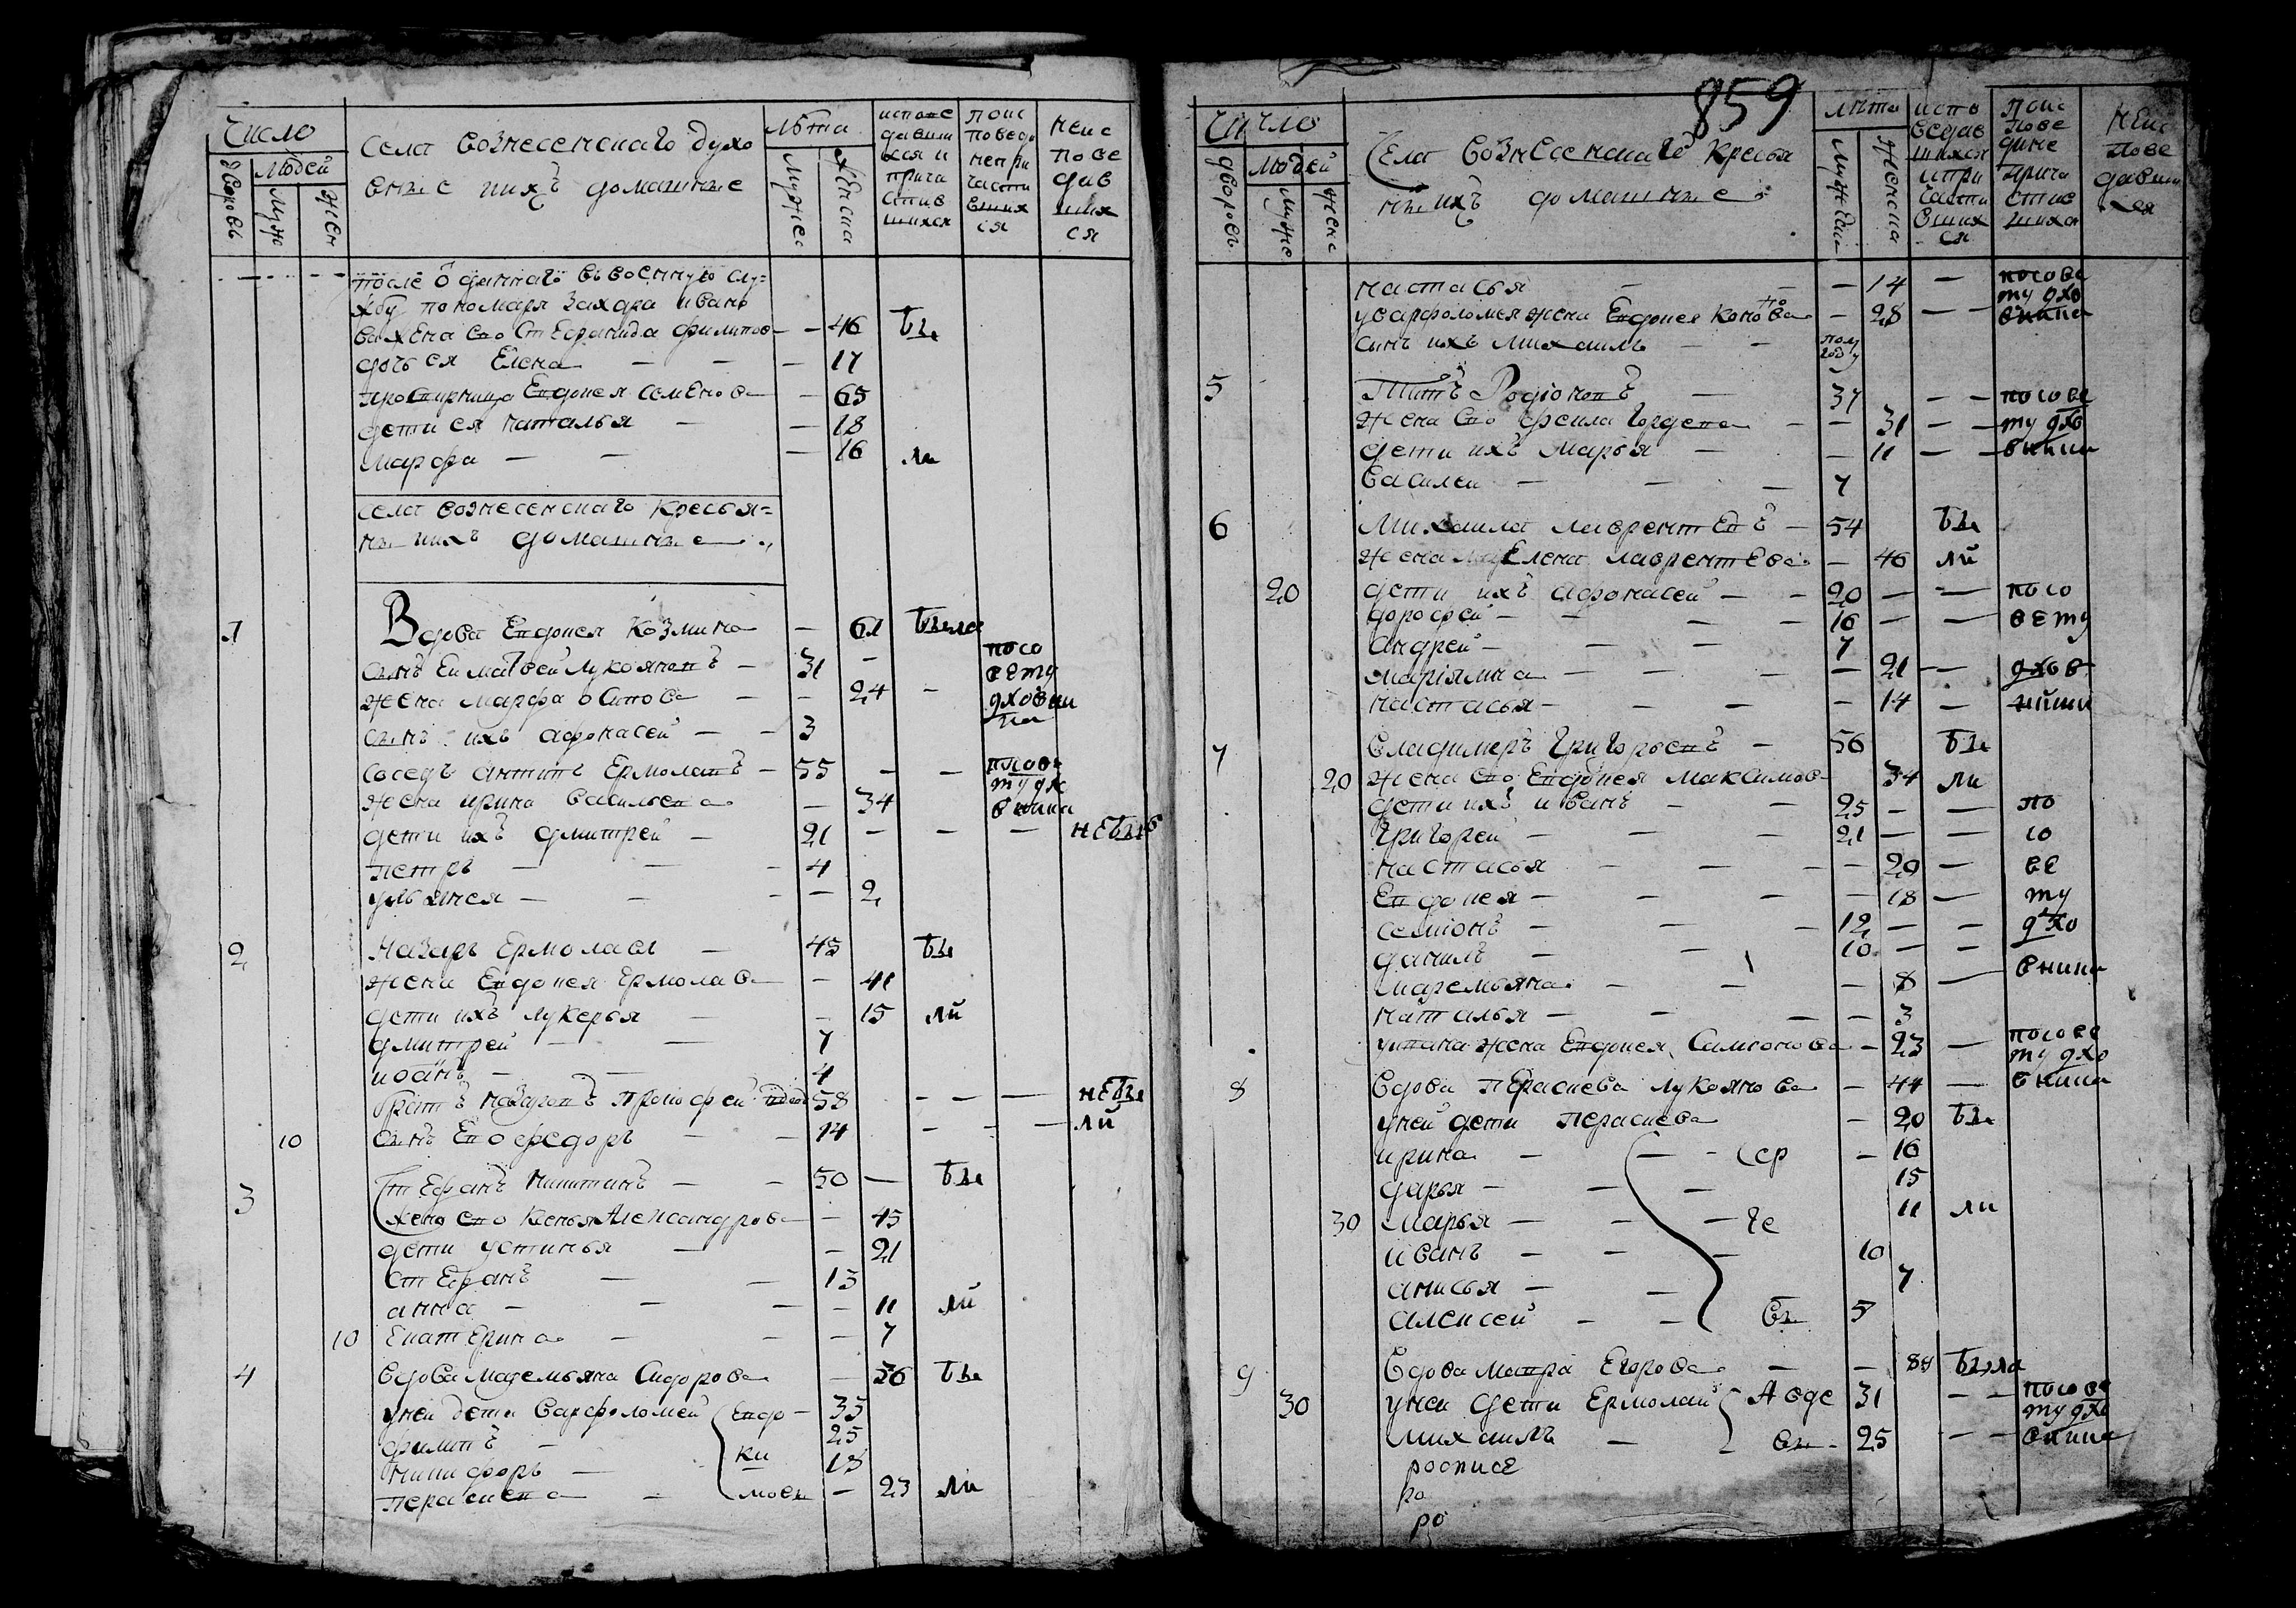 число
дворовъ
людей
муж
жен
села вознесенскаго духо
вные ихъ домашные
лѣта
мужес
женска
испове
давши
хся и
прича
стив
шихся
поис
поведо
ненри
части
вших
ся
неис
пове
дав
ших
ся
после о даннаго въ военную слу=
жбу пономаря захара ивано
ва жена ево стефанида филипов 46 бы
дочь ея Елена 17
просвирница Евдокея семенова 65
дети ея наталья 18
марфа 16 ли
села вознесенскаго кресья=
не ихъ домашные
1 Вдова Евдокея Козмина 61 была
сынъ ея матвей лукояновъ 31 посо
вету
жена марфа осипова 24 духовни
ка
сынъ ихъ афонасей 3
соседъ антипъ Ермолаевъ 55 посове
ту дхо
жена ирина васильева 34 вника
дети ихъ дмитрей 21 небылъ
петръ 4
ульянея 2
2 назаръ Ермолаев 45 бы
жена Евдокея Ермолаев 41
дети ихъ лукерья 15 ли
дмитрей 7
иоанъ 4
братъ назаровъ прокофей 58 небы
10 сынъ Ево федоръ 14 ли
3 стефанъ никитинъ 50 бы
жена ево ксенья Александрова 45
дети устинья 21
стефанъ 13
анна 11 ли
10 Екатерина 7
4 вдова маремьяна Сидорова 56 бы
уней дети варфоломей Евдо 35
филипъ 25
никифоръ ки 18
пераскева моеи 23 ли
859
число
дворовъ
людей
муже
женс
Села вознесенскаго кресья
не ихъ домашные
лѣта
мужеск
женска
испо
ведав
шихся
ипри
части
вших
ся
поис
пове
дине
прича
стив
шихся
неис
пове
давши
хся
настасья 14 посове
ту дхо
уварфоломея жена Евдокея Конова 28 вника
сынъ ихъ михаилъ полу
году
5 Титъ Родионовъ 37 посове
жена ево фекла Гордеева 31 ту дхо
дети ихъ марья 11 вники
василеи 7
6 Михаила лаврентЕвъ 54 бы
жена Елена лаврентЕва 46 ли
20 дети ихъ афонасей 20 посо
дорофей 16 вету
андрей 7
мариямна 21 дхов
настасья 14 ники
7 владимеръ григорьевъ 56 бы
20 жена ево Евдокея максимов 34 ли
дети ихъ иванъ 25 по
григорей 21 со
настасья 20 ве
Евдокея 18 ту
семионъ 12 дхо
данилъ 10
маремьяна 8 вника
наталья 3
уивана жена Евдокея Самсонова 23 посове
ту дхо
8 вдова пераскева лукоянова 44 вника
уней дети пераскева 20 бы
ирина ср 16
дарья 15
30 марья ге 11 ли
иванъ 10
анисья 7
алексей въ 5
9 вдова матра Егорова 84 была
30 уней дети Ермолай Авде 31 посове
ту дхо
михаилъ въ 25 вника
росписе
ро
ро